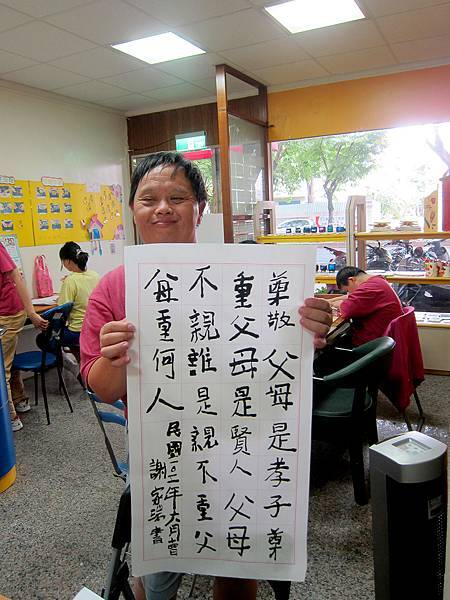 尊敬父母是孝子尊
重父母是賢人父母
不親誰是親不重父
母重何人
民國一〇一年六月
謝家瑞書